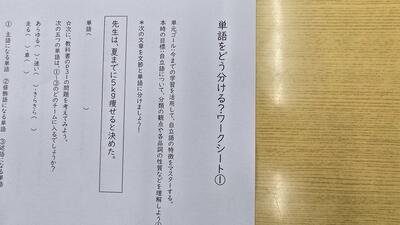 単語をどう分ける？ワークシート①
単元ゴール：今までの学習を活用して、自立語の特徴をマスターする。
本時の目標：自立語について、分類の観点や各品詞の性質などを理解しよう①
＊次の文章を文節と単語に分けましょう！
先生は、夏までに５kg痩せると決めた。
単語（　　　）
☆次に、教科書のp231の問題を考えてみよう。
次の五つの単語は、①〜③のどのチームに入るでしょうか？
あらゆる（　）・速い（　）・きらきら（　）
走る（　）・車（　）
①　主語になる単語　②修飾語になる単語　③述語になる単語